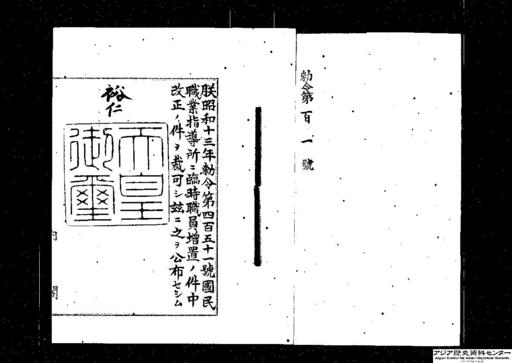 勅令第百一號
朕昭和十三年勅令第四百五十一號國民
職業指導所ニ臨時職員增置ノ件中
改正ノ件ヲ裁可シ玆ニ之ヲ公布セシム
裕仁
天皇
御璽
内閣
アジア歴史資料センター
Japan Center for Asian Historical Records